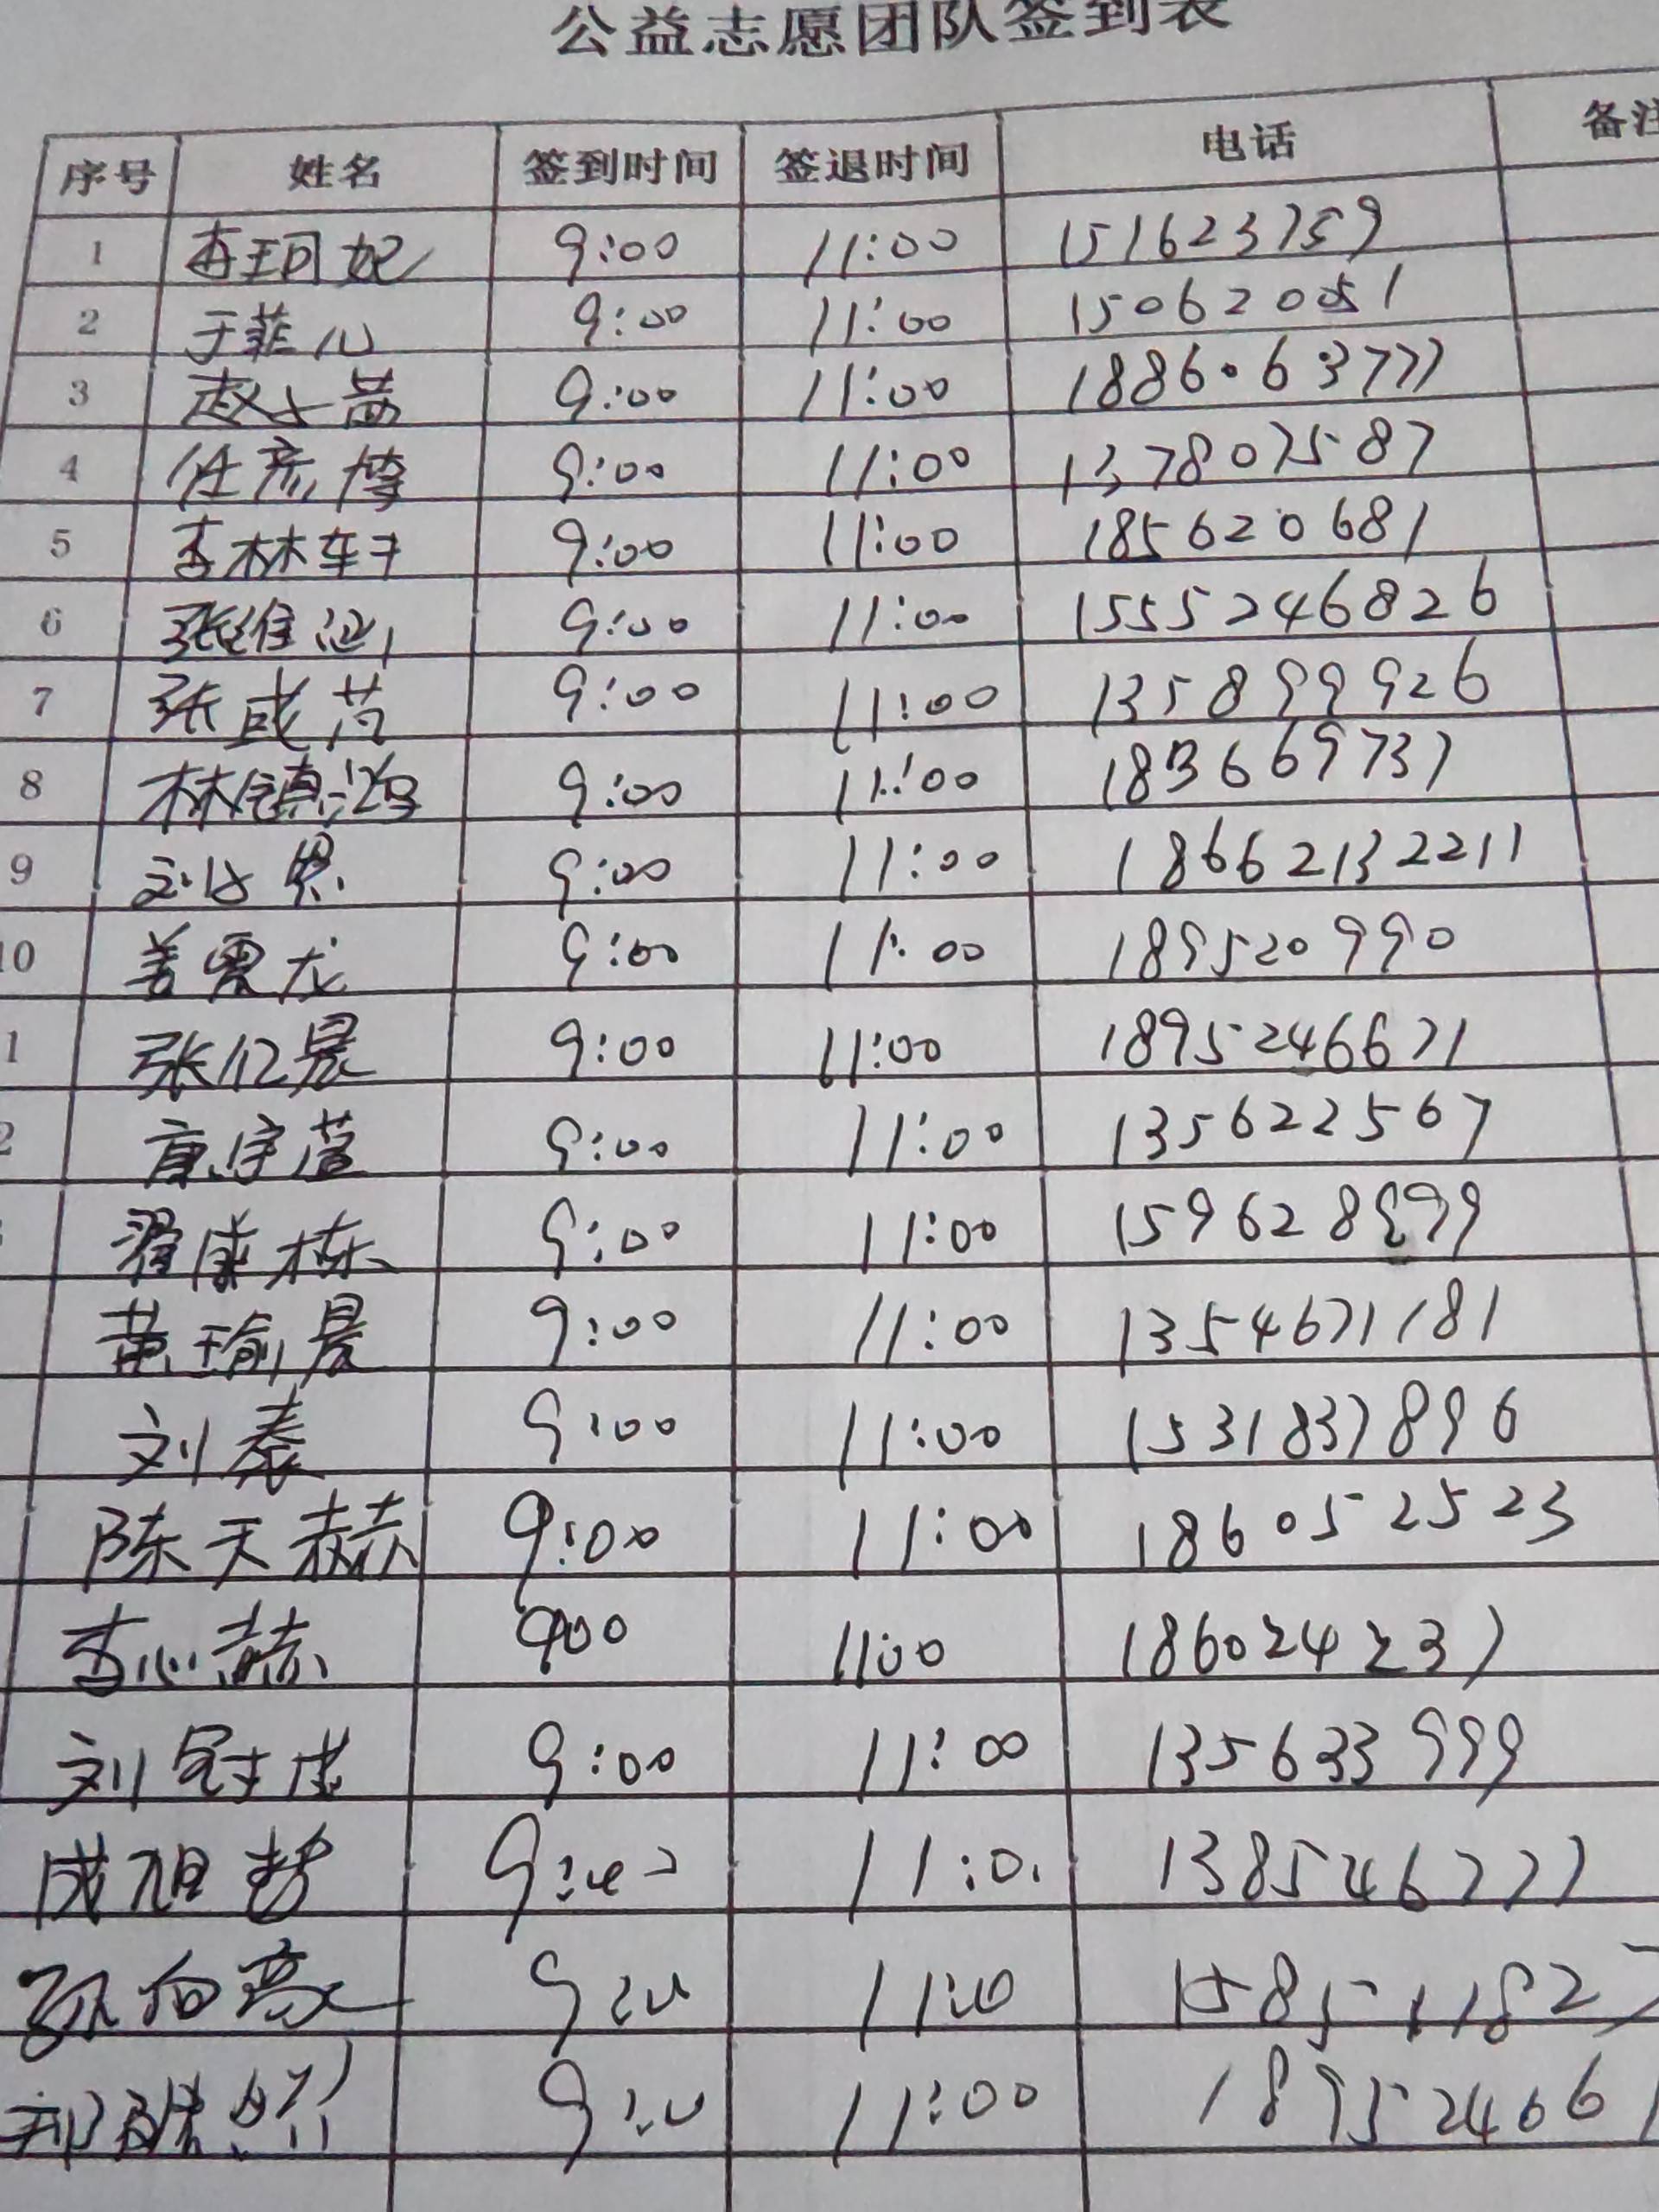 公益志愿团队签到表
序号 姓名 签到时间 签退时间 电话 备注
1 李珂妃 9:00 11:00 151623759
2 于菲儿 9:00 11:00 150620051
3 9:00 11:00 1886063777
4 任彦博 9:00 11:00 1378075587
5 李林轩 9:00 11:00 185620681
6 9:00 11:00 1555246826
7 张成茂 9:00 11:00 135899926
8 林镇鸿 9:00 11:00 183669737
9 9:00 11:00 18662132211
10 姜云龙 9:00 11:00 189520990
1 张亿晨 9:00 11:00 1895246671
2 9:00 11:00 135622567
9:00 11:00 159628999
黄瑜晨 9:00 11:00 1354671181
刘泰 9:00 11:00 1531837896
陈天赫 9:00 11:00 186052523
李心赫 900 11:00 186024237
刘冠成 9:00 11:00 135633999
成旭哲 11:0 138546777
孙向豪 158511827
11:00 189524661